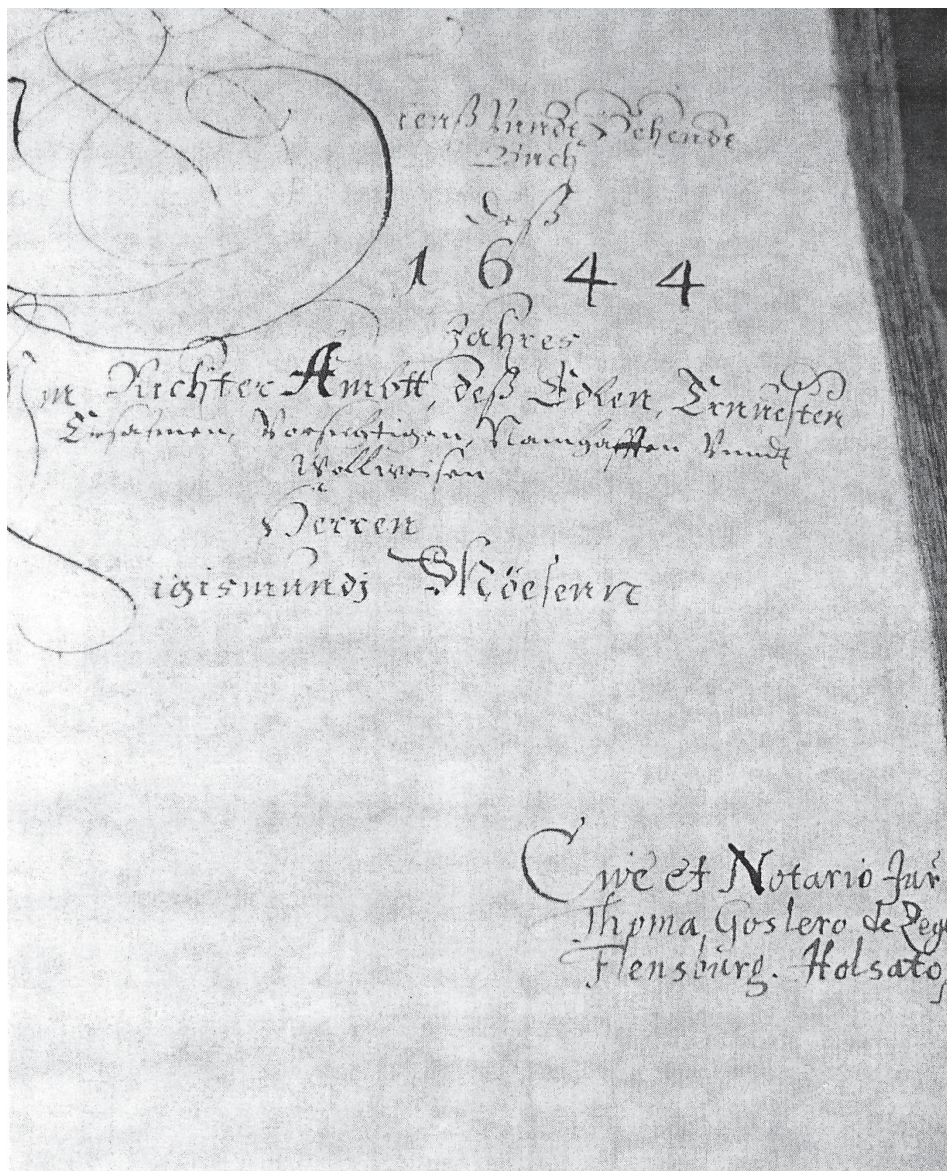 Vundt Pfendt
Buch
Deß
1644
Jahres
Im Richter Ambtt, deß Edlen, Ernuesten
Ersahmen, Vorsichtigen, Namhafften Vundt
Wollweisen
Herren
Sigismundj
Cive et Notario Jur
Thoma Goslero de
Flensburg. Holsato